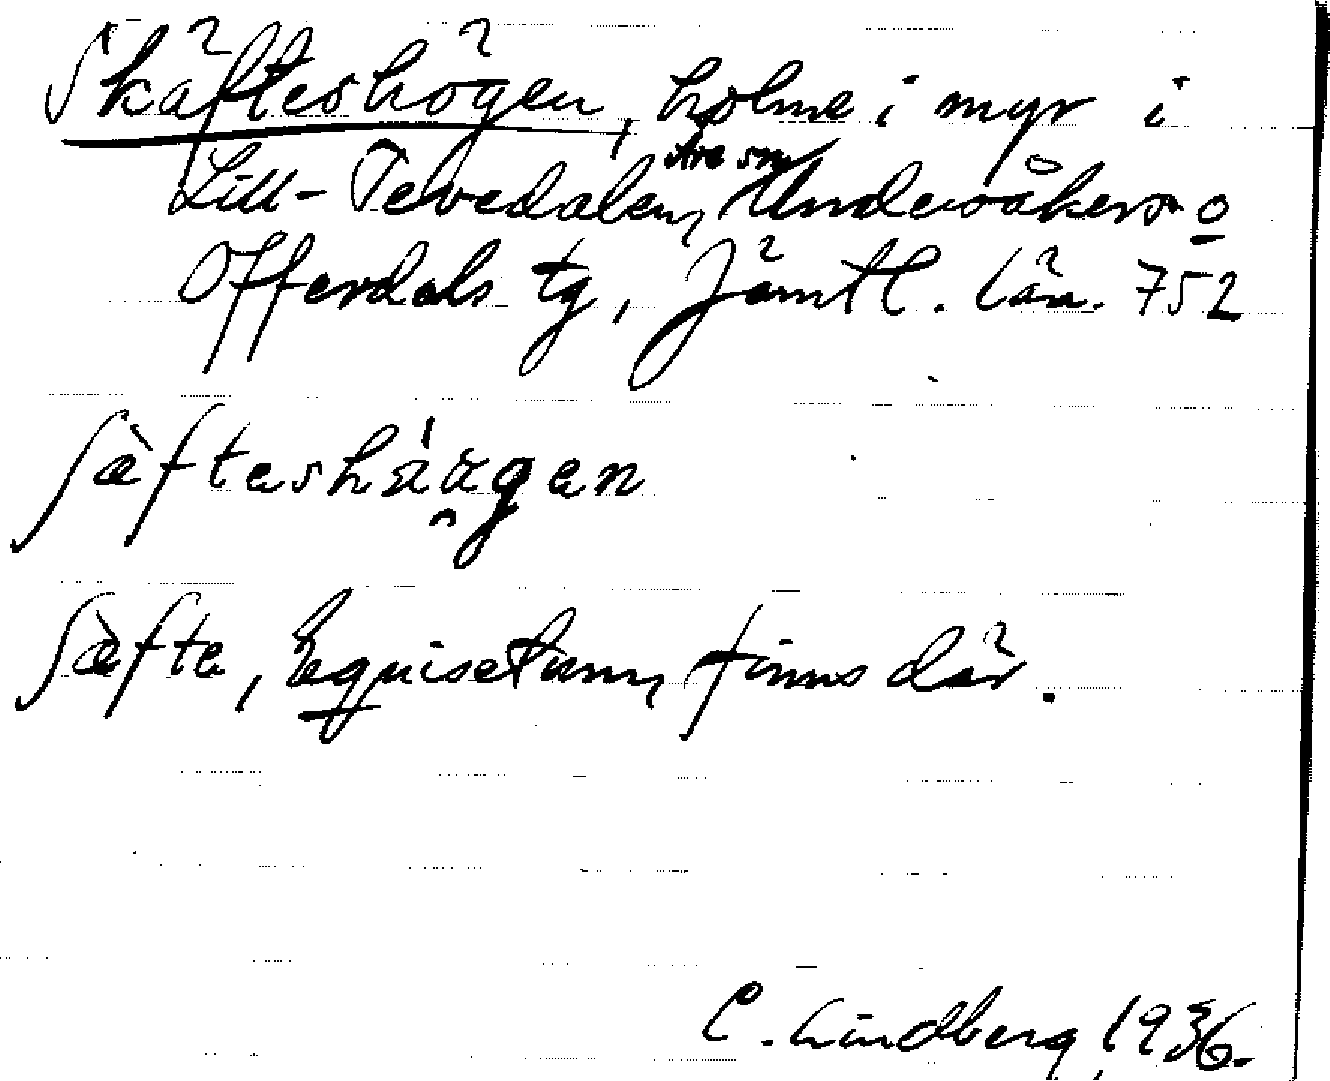 Skäfteshögen, holme i myr i
Lill-Tevedalen, Åre sn Undersåkers o
Offerdals tg, Jämtl. län. 752
ʃæ̀fteshä́ᶏgen
ʃæ̀fte, Equisetum, finns där.
C. Lindberg, 1936.